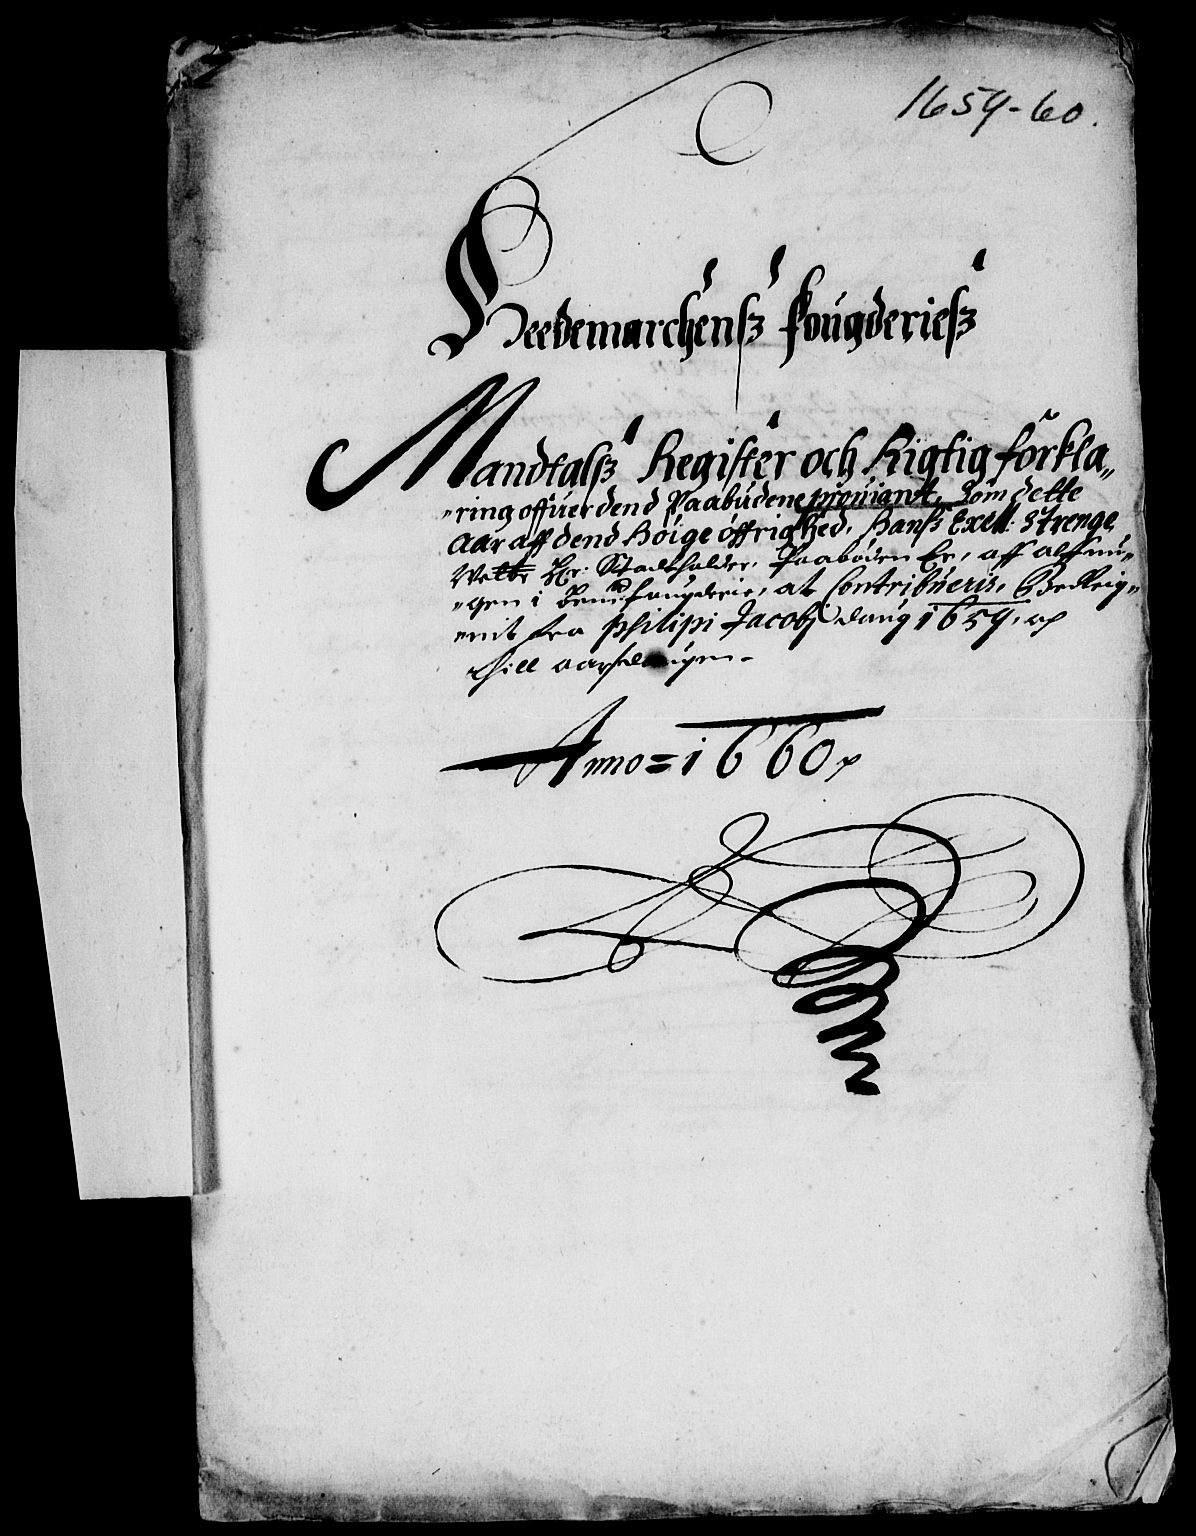 1659-60.
Heedemarchenß fougderieß
Mandtalß Register och Rigtig förkla„
„ring offuer dend Paabudene prouiantt, Som dette
Aar aff dend höige öffrighed, Hanß Exell: Strenge
Velb: Hr: Stadtholder, Paabøden Er, aff almu„
„gen i bemt fougderie, at Contribuëris, Bereig„
„nit fra philipi Jacobj daug 1659, och
thill aarß
Anno = 1660